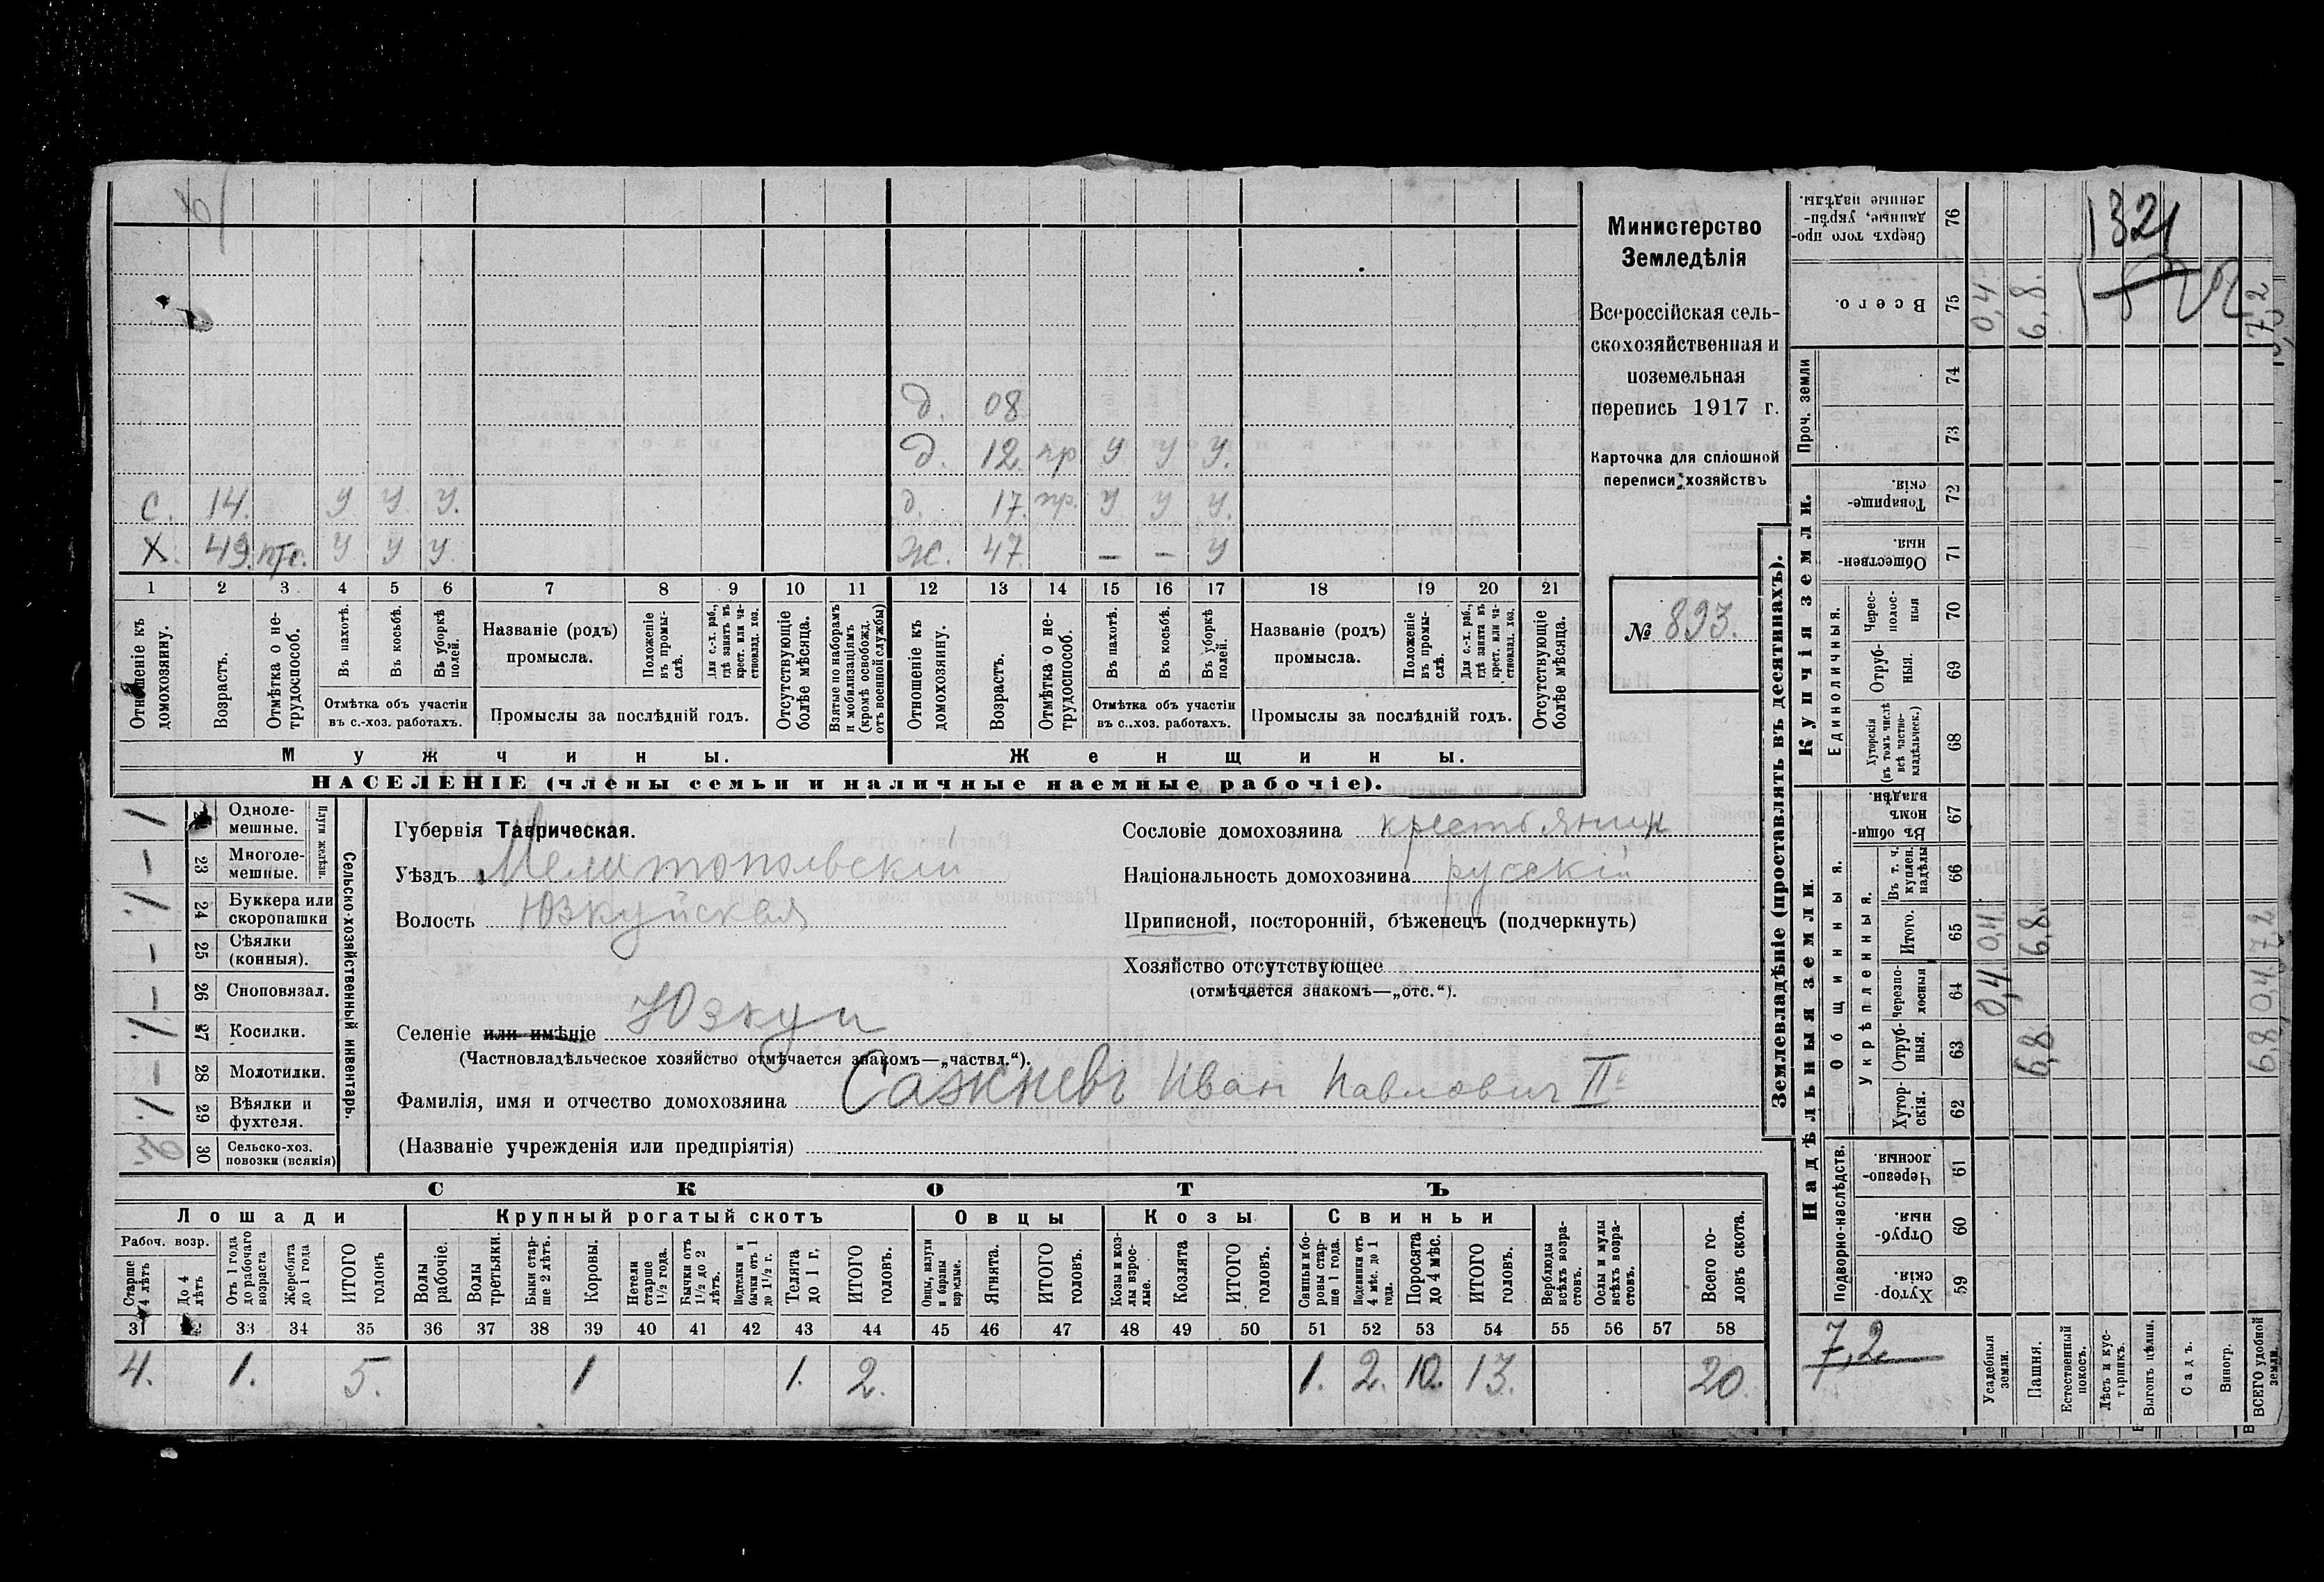 д. 08
д. 12 пр у у у.
с. 14. у у. у. д. 17. пр. у у у.
х. 49. у у у. ж. 47. — — у
1 2 3 4 5 6 7 8 9 10 11 12 13 14 15 16 17 18 19 20 21
Отношеніе къ домохозяину.
Возрастъ.
Отмѣтка о не-трудоспособ.
Въ пахотѣ.
Въ косьбѣ.
Въ уборкѣ полей.
Отмѣтка объ участіи
въ с.-хоз. работахъ.
Названіе (родъ)
промысла.
Положеніе въ промы-слѣ.
Для с.-х. раб., гдѣ занятъ въ крест. или ча-стновлад. хоз.
Промыслы за послѣдній годъ.
Отсутствующіе болѣе мѣсяца.
Взятые по наборамъ и мобилизаціямъ (кромѣ освобожд. отъ военной службы)
Отношеніе къ домохозяину.
Возрастъ.
Отмѣтка о не-трудоспособ.
Въ пахотѣ.
Въ косьбѣ.
Въ уборкѣ полей.
Отмѣтка объ участіи
въ с.-хоз. работахъ.
Названіе (родъ)
промысла.
Положеніе въ промы-слѣ.
Для с.-х. раб., гдѣ занята въ крест. или ча-стновлад. хоз.
Промыслы за послѣдній годъ.
Отсутствующіе болѣе мѣсяца.
Мужчины. Женщины.
НАСЕЛЕНІЕ (члены семьи и наличные наемные рабочіе).
Министерство
Земледѣлія
Всероссійская сель-
скохозяйственная и
поземельная
перепись 1917 г.
Карточка для сплошной
переписи хозяйствъ
№ 893.
Плуги желѣзн.
Одноле-мешные. 1
23 Многоле-мешные. 1
24 Буккера или скоропашки
25 Сѣялки (конныя). —
26 Сноповязал. —
27 Косилки.
28 Молотилки. —
29 Вѣялки и фухтеля. 1.
30 Сельско-хоз. повозки (всякія)
Сельско-хозяйственный инвентарь.
Губернія Таврическая.
Уѣздъ Мелитопольскій
Волость Юзкуйская
Селеніе или имѣніе Юзкуи
(Частновладѣльческое хозяйство отмѣчается знакомъ—„частвл.“).
Фамилія, имя и отчество домохозяина Сажневъ Иван Павлович II
(Названіе учрежденія или предпріятія)
Сословіе домохозяина крестьянин
Національность домохозяина русскій
Приписной, посторонній, бѣженецъ (подчеркнуть)
Хозяйство отсутствующее
(отмѣчается знакомъ—„отс.“).
СКОТЪ
Лошади Крупный рогатый скотъ Овцы Козы Свиньи
Рабоч. возр.
Старше 4 лѣтъ
До 4 лѣтъ
Отъ 1 года до рабочаго возраста
Жеребята до 1 года
ИТОГО головъ
Волы рабочіе.
Волы третьяки.
Быки стар-ше 2 лѣтъ.
Коровы.
Нетели старше 1½ года.
Бычки отъ 1½ до 2 лѣтъ.
Подтелки и бычки отъ 1 до 1½ г.
Телята до 1 г.
ИТОГО головъ.
Овцы, валухи и бараны взрослые.
Ягнята.
ИТОГО головъ.
Козы и коз-лы взрос-лые.
Козлята
ИТОГО головъ.
Свиньи и бо-ровы стар-ше 1 года.
Подсвинки отъ 4 мѣс. до 1 года.
Поросята до 4 мѣс.
ИТОГО головъ.
Верблюды всѣхъ возра-стовъ.
Ослы и мулы всѣхъ возра-стовъ.
Всего го-ловъ скота.
31 33 34 35 36 37 38 39 40 41 42 43 44 45 46 47 48 49 50 51 52 53 54 55 56 57 58
4. 1. 5. 1 1. 2. 1. 2. 10. 13. 20.
Землевладѣніе (проставлять въ десятинахъ).
Купчія земли.
Надѣльныя земли.
Сверхъ того про-данные, укрѣп-ленные надѣлы. 76
Всего. 75 0,4 6,8 7,2
Проч. земли 74 73
Товарище-скія. 72
Обществен-ныя. 71
Единоличныя.
Черес-полос-ныя 70
Отруб-ныя. 69
Хуторскія (въ томъ числѣ всѣ частно-владѣльческ.) 68
Общинныя.
Въ общи-номъ владѣн. 67
Укрѣпленныя.
Въ т. ч. куплен. надѣлы 66
Итого. 65 0,4 6,8 7,2
Черезпо-лосныя 64 0,4 0,4
Отруб-ныя. 63 6,8 6,8
Хутор-скія. 62
Подворно-наслѣдств.
Черезпо-лосныя. 61
Отруб-ныя. 60
Хутор-скія. 59
1321
7,2
Усадебныя земли.
Пашня.
Естественный покосъ.
Лѣсъ и кус-тарникъ.
Выгонъ цѣлин.
Садъ.
Виногр.
ВСЕГО удобной земли.